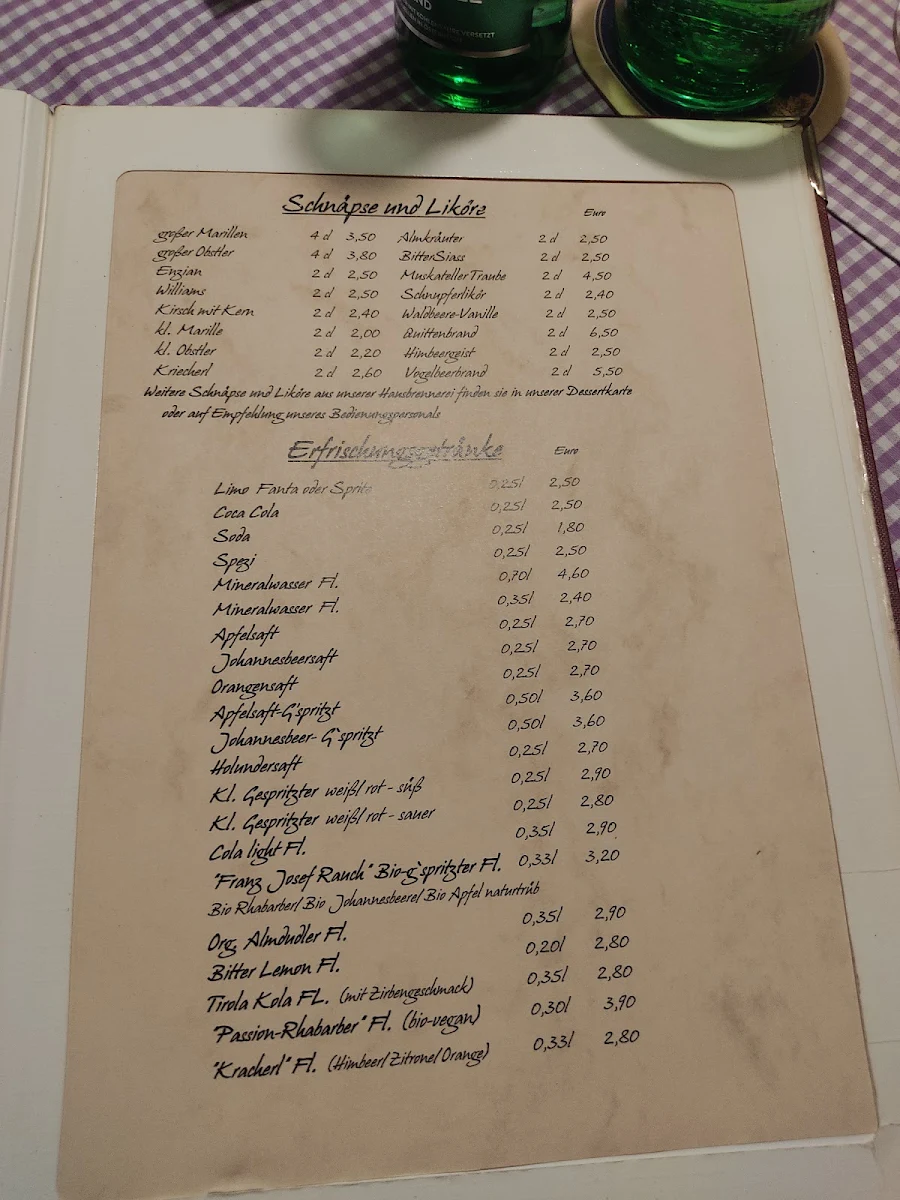 VERSETZT
Schnäpse und Liköre Euro
großer Marillen 4 d 3,50 Almkräuter 2 d 2,50
großer Obstler 4 d 3,80 BitterSiass 2 d 2,50
Enzian 2 d 2,50 Muskateller Traube 2 d 4,50
Williams 2 d 2,50 Schnupferlikör 2 d 2,40
Kirsch mit Kern 2 d 2,40 Waldbeere-Vanille 2 d 2,50
kl. Marille 2 d 2,00 Quittenbrand 2 d 6,50
kl. Obstler 2 d 2,20 Himbeergeist 2 d 2,50
Kriecherl 2 d 2,60 Vogelbeerbrand 2 d 5,50
Weitere Schnäpse und Liköre aus unserer Hausbrennerei finden sie in unserer Dessertkarte
oder auf Empfehlung unseres Bedienungspersonals
Erfrischungsgetränke Euro
Limo Fanta oder Sprite 0,25l 2,50
Coca Cola 0,25l 2,50
Soda 0,25l 1,80
Spezi 0,25l 2,50
Mineralwasser Fl. 0,70l 4,60
Mineralwasser Fl. 0,35l 2,40
Apfelsaft 0,25l 2,70
Johannesbeersaft 0,25l 2,70
Orangensaft 0,25l 2,70
Apfelsaft-G'spritzt 0,50l 3,60
Johannesbeer- G`spritzt 0,50l 3,60
Holundersaft 0,25l 2,70
Kl. Gespritzter weiß/ rot - süß 0,25l 2,90
Kl. Gespritzter weiß/ rot - sauer 0,25l 2,80
Cola light Fl. 0,35l 2,90
"Franz Josef Rauch" Bio-g`spritzter Fl. 0,33l 3,20
Bio Rhabarber/ Bio Johannesbeere/ Bio Apfel naturtrüb
Org. Almdudler Fl. 0,35l 2,90
Bitter Lemon Fl. 0,20l 2,80
Tirola Kola FL. (mit Zirbengeschmack) 0,35l 2,80
"Passion-Rhabarber" Fl. (bio-vegan) 0,30l 3,90
"Kracherl" Fl. (Himbeer/ Zitrone/ Orange) 0,33l 2,80